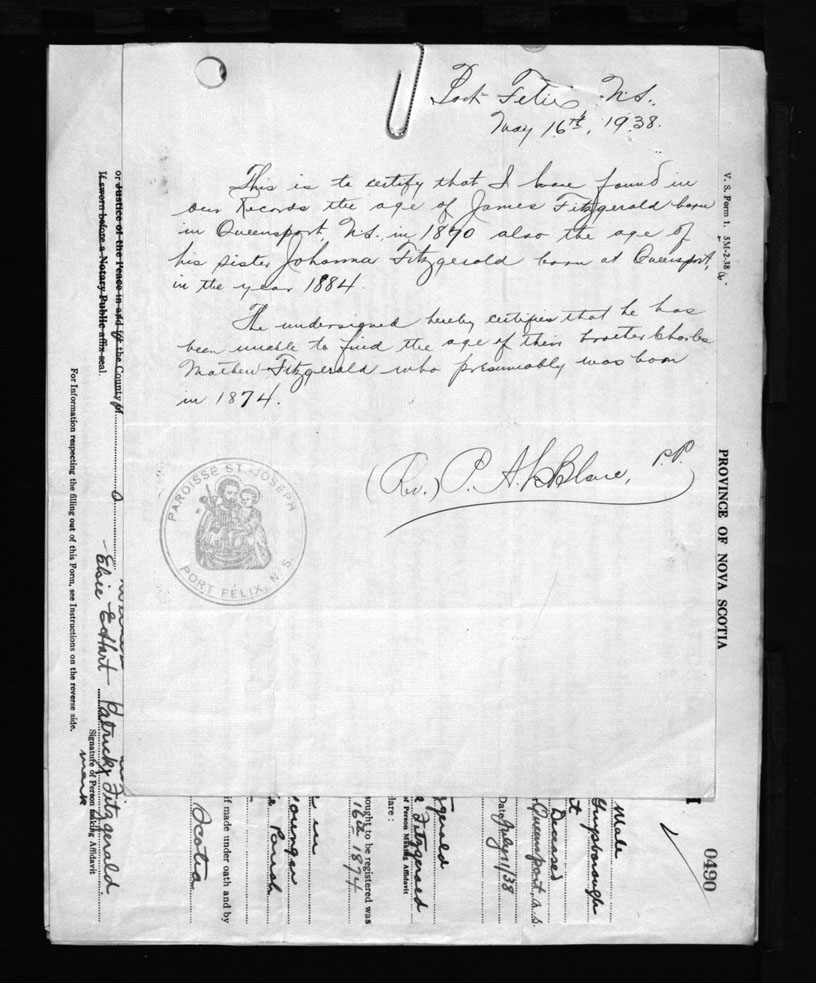 Port Felix N.S.,
May 16th, 1938.
This is to certify that I have found in
our Records the age of James Fitzgerald born
in Queensport, N.S., in 1890 also the age of
his sister Johanna Fitzgerald born at Queensport,
in the year 1884.
The undersigned hereby certifies that he has
been unable to find the age of their brother Charles
Mathew Fitzgerald who presumably was born
in 1874.
(Rev.) P. A. LeBlanc, P.P.
PAROISSE ST. JOSEPH
PORT FÉLIX, N.S.
V. S. Form 1. 5M-2.38
PROVINCE OF NOVA SCOTIA
0490
Male
Guysborough
Deceased
Queensport, N.S.
Date July 11/38
Fitzgerald
of Person Making Affidavit
clare:
sought to be registered was
16th 1874
in
younger
Parish
if made under oath and by
Scotia
or Justice of the Peace in and for the County of
If sworn before a Notary Public affix seal.
For Information respecting the filling out of this Form, see Instructions on the reverse side.
Elsie E Hart
Patrick Fitzgerald
Signature of Person making Affidavit
mark